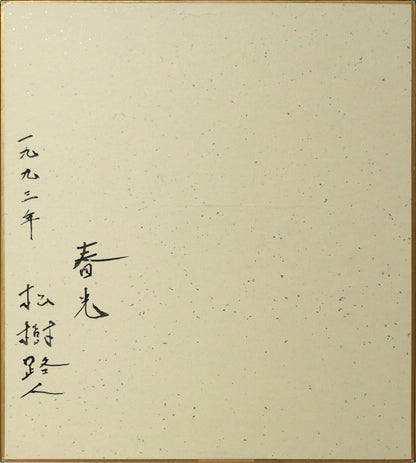 春光
一九九三年
松樹路人